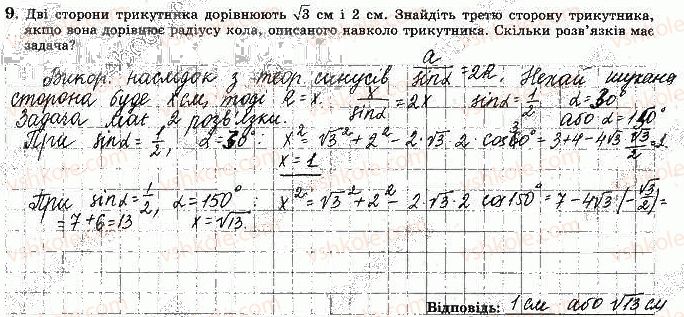 9. Дві сторони трикутника дорівнюють √3 см і 2 см. Знайдіть третю сторону трикутника,
якщо вона дорівнює радіусу кола, описаного навколо трикутника. Скільки розв'язків має
задача?
Викор. наслідок з теор. синусів a/sinα = 2R. Нехай шукана
сторона буде x см, тоді R = x. x/sinα = 2x sinα = 1/2 α = 30°
Задача має 2 розв'язки. або α = 150°
При sinα = 1/2, α = 30°: x² = √3² + 2² - 2·√3·2 cos30° = 3+4-4√3·√3/2 = 1.
x = 1
При sinα = 1/2, α = 150°: x² = √3² + 2² - 2·√3·2 cos150° = 7 - 4√3·(-√3/2) =
= 7+6 = 13 x = √13.
Відповідь: 1 см або √13 см